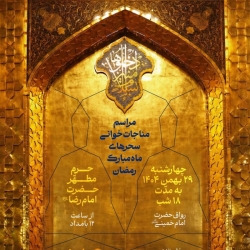 مراسم
مناجات‌خوانی
سحرهای
ماه مبارک
رمضان
چهارشنبه
۲۹ بهمن ۱۴۰۴
به مدت
۱۸ شب
رواق حضرت
امام خمینی
حرم
مطهر
حضرت
امام رضا
از ساعت
۲ بامداد